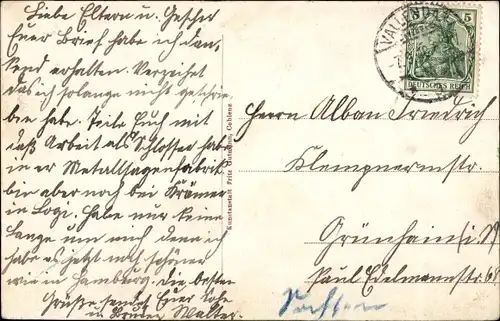 Liebe Eltern u. Geschw.
Euer Brief habe ich dan-
kend erhalten. Verzeihet
das ich solange nicht geschrie-
ben habe. Teile Euch mit
daß Arbeit als Schlosser habe
in er Metallsagenfabrik
bin aber noch bei Krämer
in Logi. Habe nur keine
Lange um mich denn ich
habe es jetzt viel schöner
wie in Hamburg. Die besten
Grüße sendet Euer Sohn
u Bruder Walter.
Kunstanstalt Fritz Gutmann, Coblenz
VALLENDAR
5
DEUTSCHES REICH
Herrn Alban Friedrich
Klempnermstr.
Grünhain i/S
Paul Edelmannstr. 68
Sachsen